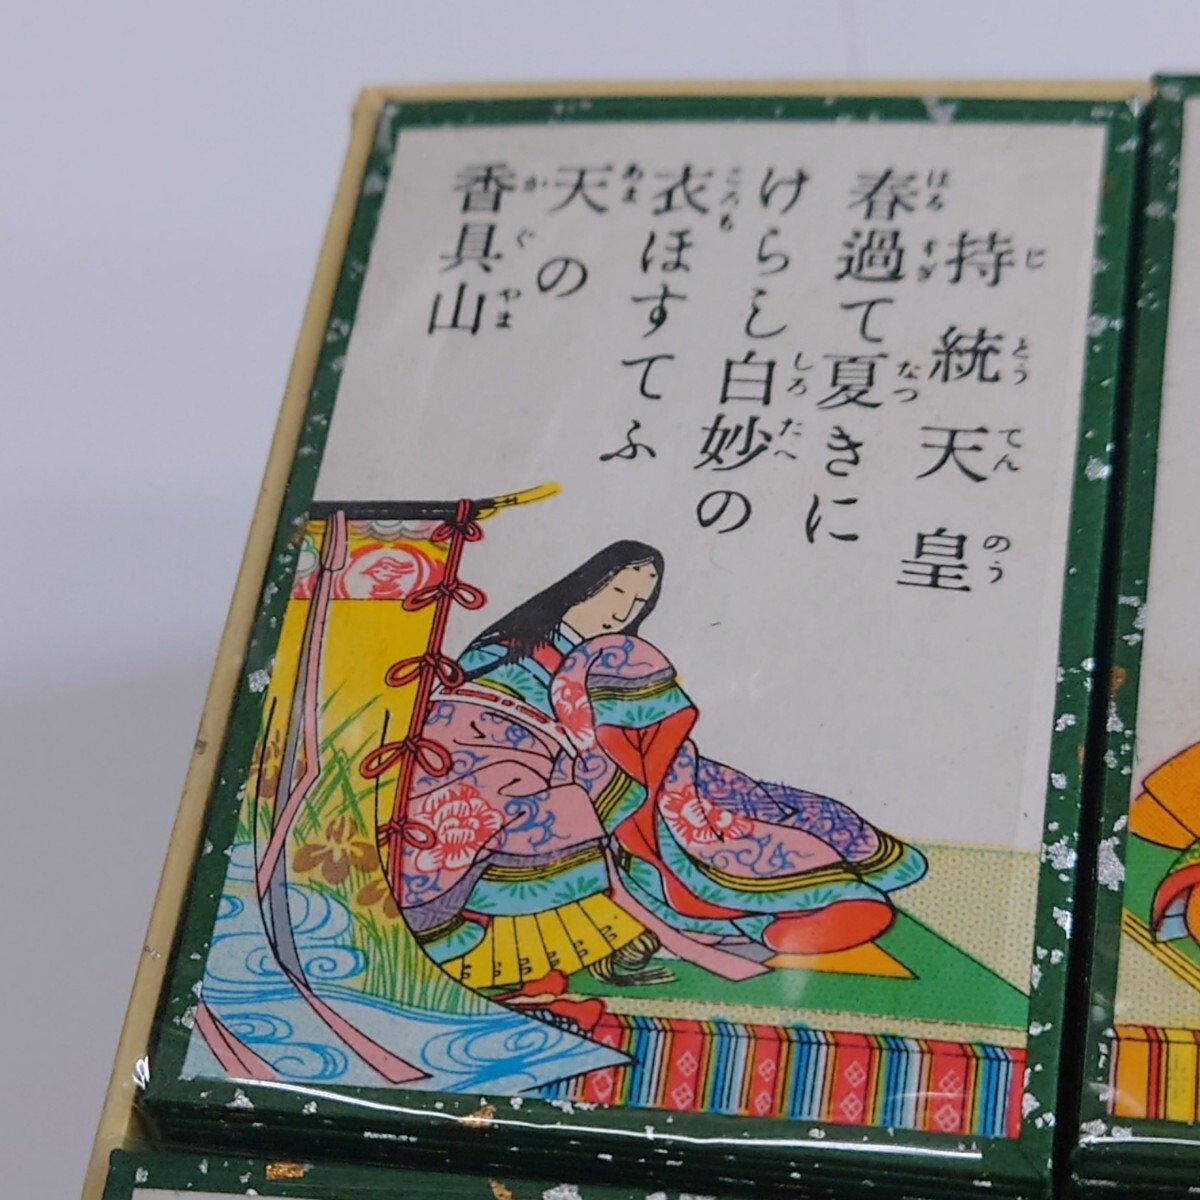 持統天皇
春過て夏きに
けらし白妙の
衣ほすてふ
天の
香具山